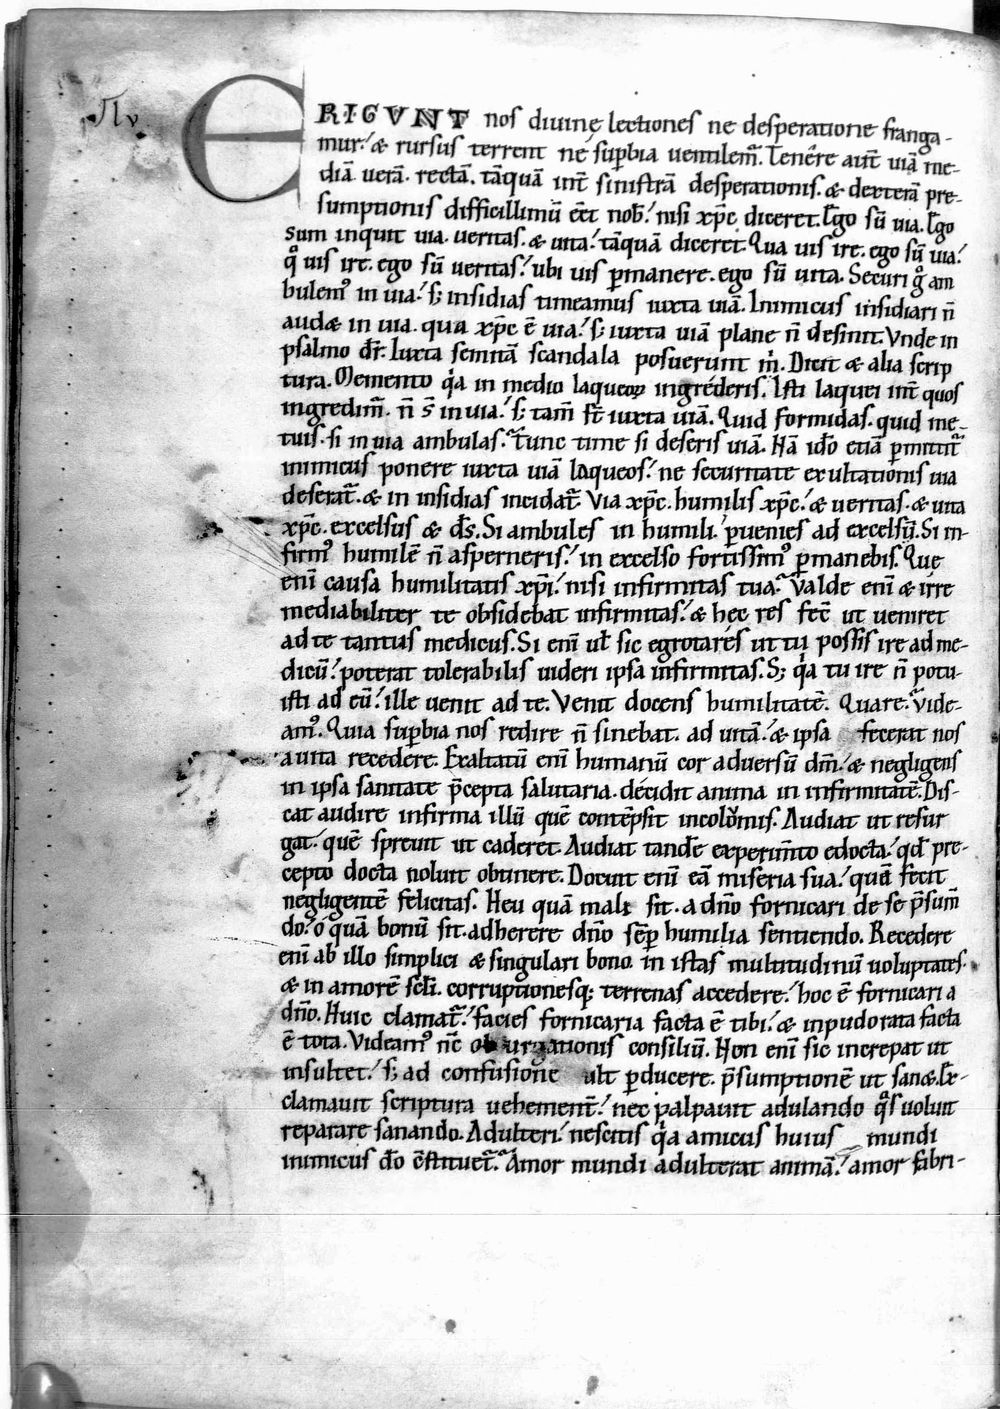 ERIGVNT nos diuinę lectiones ne desperatione franga-
mur: & rursus terrent ne suꝑbia uentilem̄. Tenére aut̄ uiā me-
diā. uerā. rectā. tāquā int̄ sinistrā desperationis. & dexterā pre-
sumptionis difficillimū eēt nob̄: nisi xp̄c diceret. Ego sū uia. Ego
sum inquit uia. ueritas. & uita: tāquā diceret. Qua uis ire. ego sū uia:
q̊ uis ire. ego sū ueritas: ubi uis ꝑmanere. ego sū uita. Securi g̊ am
bulemꝰ in uia: s; insidias timeamus iuxta uiā. Inimicus insidiari n̄
audæ in uia. qua xp̄c ē uia: s; iuxta uiā plane n̄ desinit. Vnde in
psalmo dr̄. Iuxta semitā scandala posuerunt m̊. Dicit & alia scrip
tura. Memento qͥa in medio laqueoꝝ ingréderis. Isti laquei int̄ quos
ingredim̄. n̄ s̄ in uia: s; tam̄ st̄ iuxta uiā. Quid formidas. quid me-
tuis. si in uia ambulas. Tunc time si deseris uiā. Nā ido̅ etiā ꝑmittit̄
inimicus ponere iuxta uiā laqueos: ne securitate exultationis uia
deserat̄. & in insidias incidat̄. Via xp̄c. humilis xp̄c: & ueritas. & uita
xp̄c. excelsus & d̄s. Si ambules in humili. ꝑuenies ad excelsū. Si in-
firmꝰ humilē n̄ asperneris: in excelso fortissimꝰ ꝑmanebis. Que
enī causa humilitatis xp̄i: nisi infirmitas tua. Valde enī & irre
mediabiliter te obsidebat infirmitas: & hec res fec̄ ut ueniret
ad te tantus medicus. Si enī ul̄ sic egrotáres ut tu possis ire ad me-
dicū: poterat tolerabilis uideri ipsa infirmitas. S; qͥa tu ire n̄ potu-
isti ad eū: ille uenit ad te. Venit docens humilitatē. Quare. Vide-
amꝰ. Quia suꝑbia nos redire n̄ sinebat. ad uitā: & ipsa fecerat nos
a uita recedere. Exaltatū enī humanū cor aduersū dm̄: & negligens
in ipsa sanitate p̄cepta salutaria. décidit anima in infirmitatē. Dis-
cat audire infirma illū quē contēpsit incolomis. Audiat ut resur
gat. quē spreuit ut caderet. Audiat tande̅ experim̄to edocta: qd̄ pre-
cepto docta noluit obtinere. Docuit enī eā miseria sua: quā fecit
negligentē felicitas. Heu quā male sit. a dn̄o fornicari de se p̄sum̄
do: o quā bonū sit. adherere dn̄o seꝑ humilia sentiendo. Recedere
enī ab illo simplici & singulari bono. in istas multitudinū uoluptates.
& in amorē sc̄li. corruptionesq; terrenas accedere: hoc ē fornicari a
dn̄o. Huic clamat̄: facies fornicaria facta ē tibi: & inpudorata facta
ē tota. Videamꝰ nc̄ obiurgationis consiliū. Non enī sic increpat ut
insultet: s; ad confusione ult ꝑducere. p̄sumptionē ut sanæ. Ex-
clamauit scriptura uehement̄: nec palpauit adulando q̊s uoluit
reparare sanando. Adulteri: nescitis qͥa amicus huius mundi
inimicus do̅ cs̄tituet̄. Amor mundi adulterat animā: amor fabri-